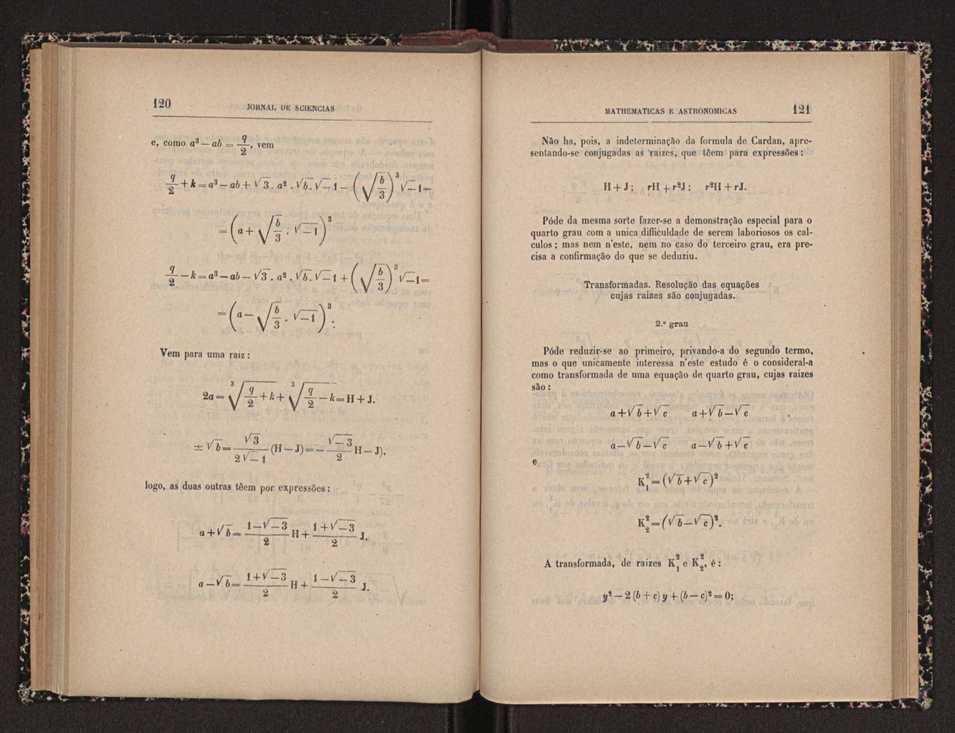 120
JORNAL DE SCIENCIAS
e, como a³ — ab = q/2, vem
q/2 + k = a³ — ab + √3 . a² . √b . √—1 — (√(b/3))³ √—1 =
= (a + √(b/3) . √—1)³
q/2 — k = a³ — ab — √3 . a² . √b . √—1 + (√(b/3))³ √—1 =
= (a — √(b/3) . √—1)³.
Vem para uma raiz :
2a = ³√(q/2 + k) + ³√(q/2 — k) = H + J.
± √b = √3/(2√—1) (H — J) = — √—3/2 H — J).
logo, as duas outras têem por expressões :
a + √b = (1—√—3)/2 H + (1+√—3)/2 J.
a — √b = (1+√—3)/2 H + (1—√—3)/2 J.
MATHEMATICAS E ASTRONOMICAS
121
Não ha, pois, a indeterminação da formula de Cardan, apre-
sentando-se conjugadas as raizes, que têem para expressões :
H + J ; rH + r²J ; r²H + rJ.
Póde da mesma sorte fazer-se a demonstração especial para o
quarto grau com a unica difficuldade de serem laboriosos os cal-
culos ; mas nem n'este, nem no caso do terceiro grau, era pre-
cisa a confirmação do que se deduziu.
Transformadas. Resolução das equações
cujas raizes são conjugadas.
2.º grau
Póde reduzir-se ao primeiro, privando-a do segundo termo,
mas o que unicamente interessa n'este estudo é o consideral-a
como transformada de uma equação de quarto grau, cujas raizes
são :
a + √b + √c a + √b — √c
a — √b — √c a — √b + √c
e
K₁² = (√b + √c)²
K₂² = (√b — √c)².
A transformada, de raizes K₁² e K₂², é :
y² — 2 (b + c) y + (b — c)² = 0;